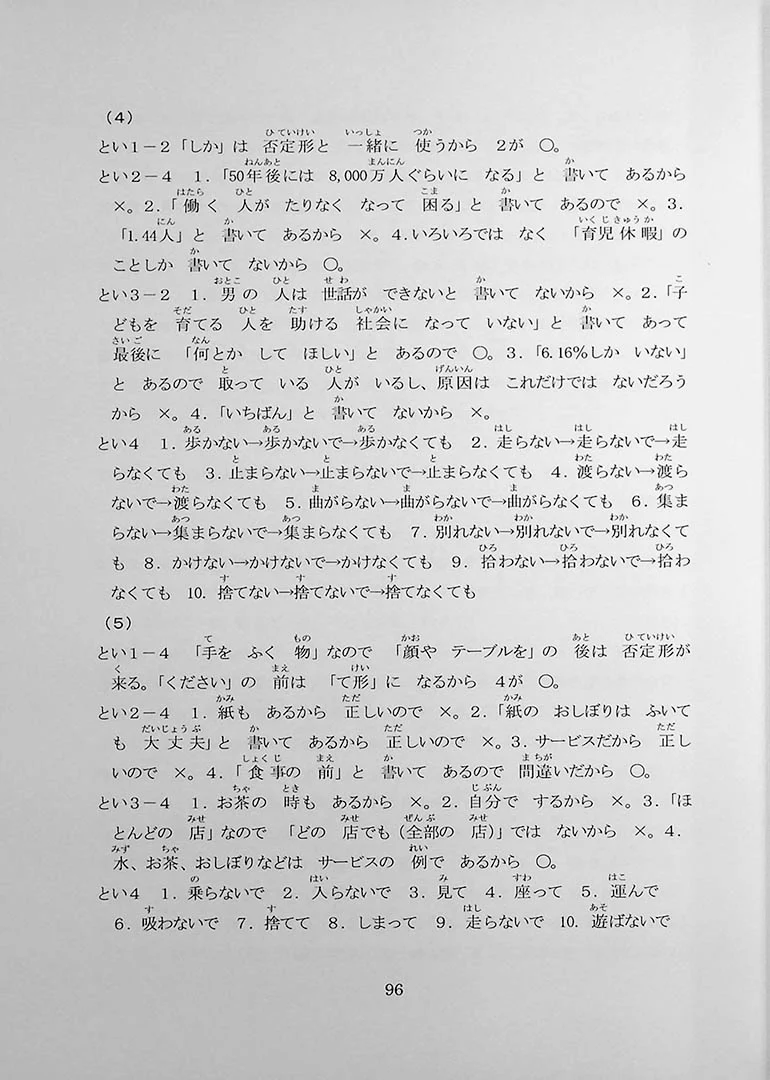 (4)
とい1－2「しか」は 否定形と 一緒に 使うから 2が ○。
とい2－4 1．「50年後には 8,000万人ぐらいに なる」と 書いて あるから
×。2．「働く 人が たりなく なって 困る」と 書いて あるので ×。3．
「1.44人」と 書いて あるから ×。4．いろいろでは なく 「育児休暇」の
ことしか 書いて ないから ○。
とい3－2 1．男の 人は 世話が できないと 書いて ないから ×。2．「子
どもを 育てる 人を 助ける 社会に なって いない」と 書いて あって
最後に 「何とか して ほしい」と あるので ○。3．「6.16％しか いない」
と あるので 取って いる 人が いるし、原因は これだけでは ないだろう
から ×。4．「いちばん」と 書いて ないから ×。
とい4 1．歩かない→歩かないで→歩かなくても 2．走らない→走らないで→走
らなくても 3．止まらない→止まらないで→止まらなくても 4．渡らない→渡ら
ないで→渡らなくても 5．曲がらない→曲がらないで→曲がらなくても 6．集ま
らない→集まらないで→集まらなくても 7．別れない→別れないで→別れなくて
も 8．かけない→かけないで→かけなくても 9．拾わない→拾わないで→拾わ
なくても 10．捨てない→捨てないで→捨てなくても
(5)
とい1－4 「手を ふく 物」なので 「顔や テーブルを」の 後は 否定形が
来る。「ください」の 前は 「て形」に なるから 4が ○。
とい2－4 1．紙も あるから 正しいので ×。2．「紙の おしぼりは ふいて
も 大丈夫」と 書いて あるから 正しいので ×。3．サービスだから 正し
いので ×。4．「食事の 前」と 書いて あるので 間違いだから ○。
とい3－4 1．お茶の 時も あるから ×。2．自分で するから ×。3．「ほ
とんどの 店」なので 「どの 店でも（全部の 店）」では ないから ×。4．
水、お茶、おしぼりなどは サービスの 例で あるから ○。
とい4 1．乗らないで 2．入らないで 3．見て 4．座って 5．運んで
6．吸わないで 7．捨てて 8．しまって 9．走らないで 10．遊ばないで
96